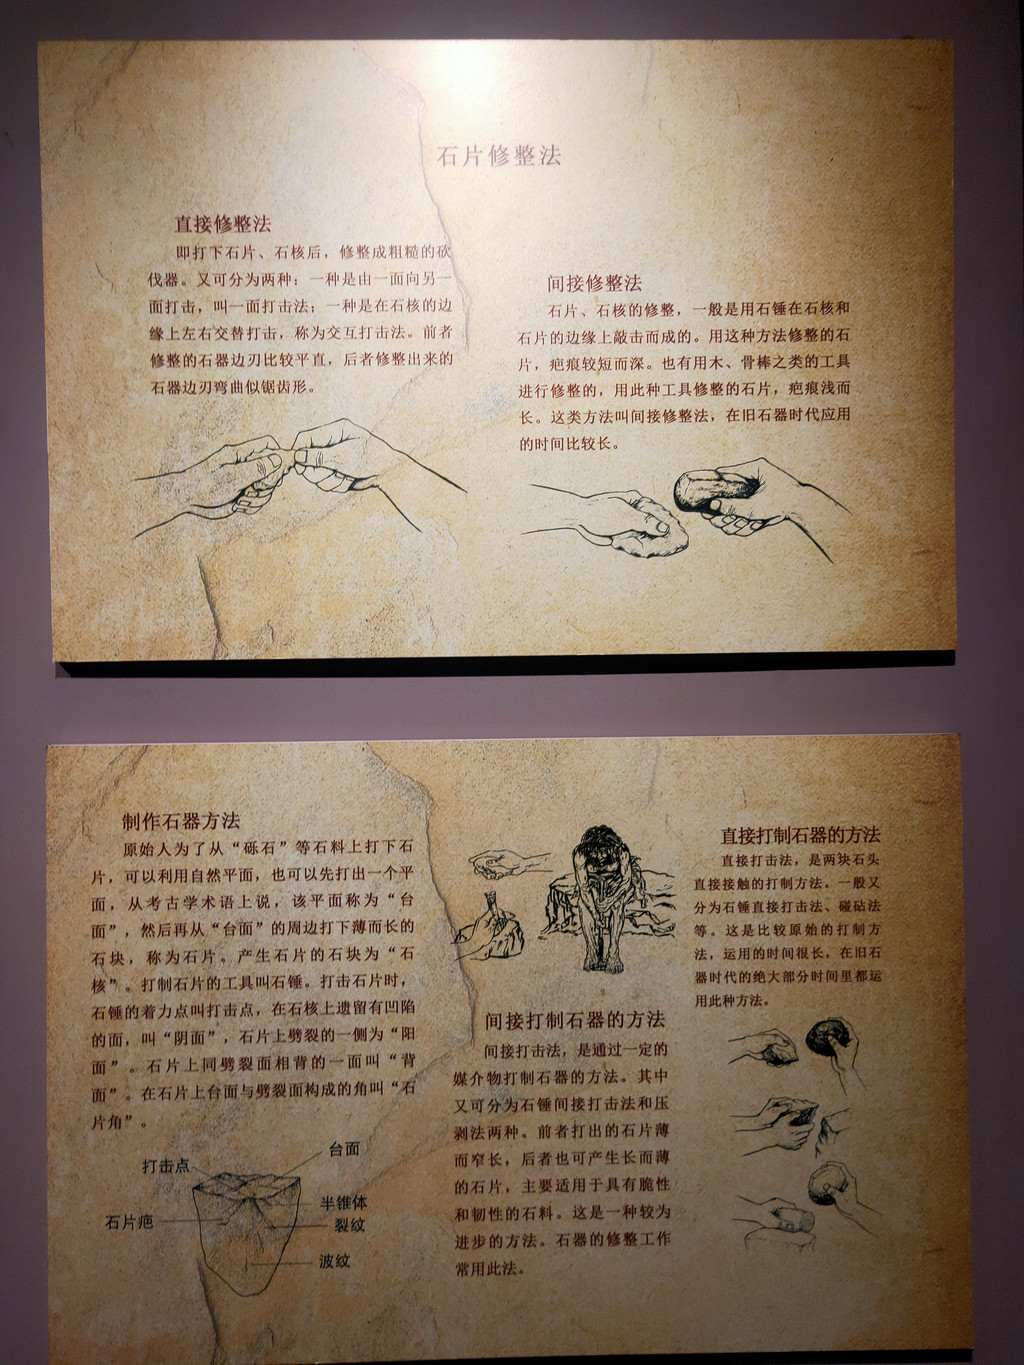 石片修整法
直接修整法
即打下石片、石核后，修整成粗糙的砍
伐器。又可分为两种：一种是由一面向另一
面打击，叫一面打击法；一种是在石核的边
缘上左右交替打击，称为交互打击法。前者
修整的石器边刃比较平直，后者修整出来的
石器边刃弯曲似锯齿形。
间接修整法
石片、石核的修整，一般是用石锤在石核和
石片的边缘上敲击而成的。用这种方法修整的石
片，疤痕较短而深。也有用木、骨棒之类的工具
进行修整的，用此种工具修整的石片，疤痕浅而
长。这类方法叫间接修整法，在旧石器时代应用
的时间比较长。
制作石器方法
原始人为了从“砾石”等石料上打下石
片，可以利用自然平面，也可以先打出一个平
面，从考古学术语上说，该平面称为“台
面”，然后再从“台面”的周边打下薄而长的
石块，称为石片。产生石片的石块为“石
核”。打制石片的工具叫石锤。打击石片时，
石锤的着力点叫打击点，在石核上遗留有凹陷
的面，叫“阴面”，石片上劈裂的一侧为“阳
面”。石片上同劈裂面相背的一面叫“背
面”。在石片上台面与劈裂面构成的角叫“石
片角”。
打击点
台面
石片疤
半锥体
裂纹
波纹
间接打制石器的方法
间接打击法，是通过一定的
媒介物打制石器的方法。其中
又可分为石锤间接打击法和压
剥法两种。前者打出的石片薄
而窄长，后者也可产生长而薄
的石片，主要适用于具有脆性
和韧性的石料。这是一种较为
进步的方法。石器的修整工作
常用此法。
直接打制石器的方法
直接打击法，是两块石头
直接接触的打制方法。一般又
分为石锤直接打击法、碰砧法
等。这是比较原始的打制方
法，运用的时间很长，在旧石
器时代的绝大部分时间里都运
用此种方法。